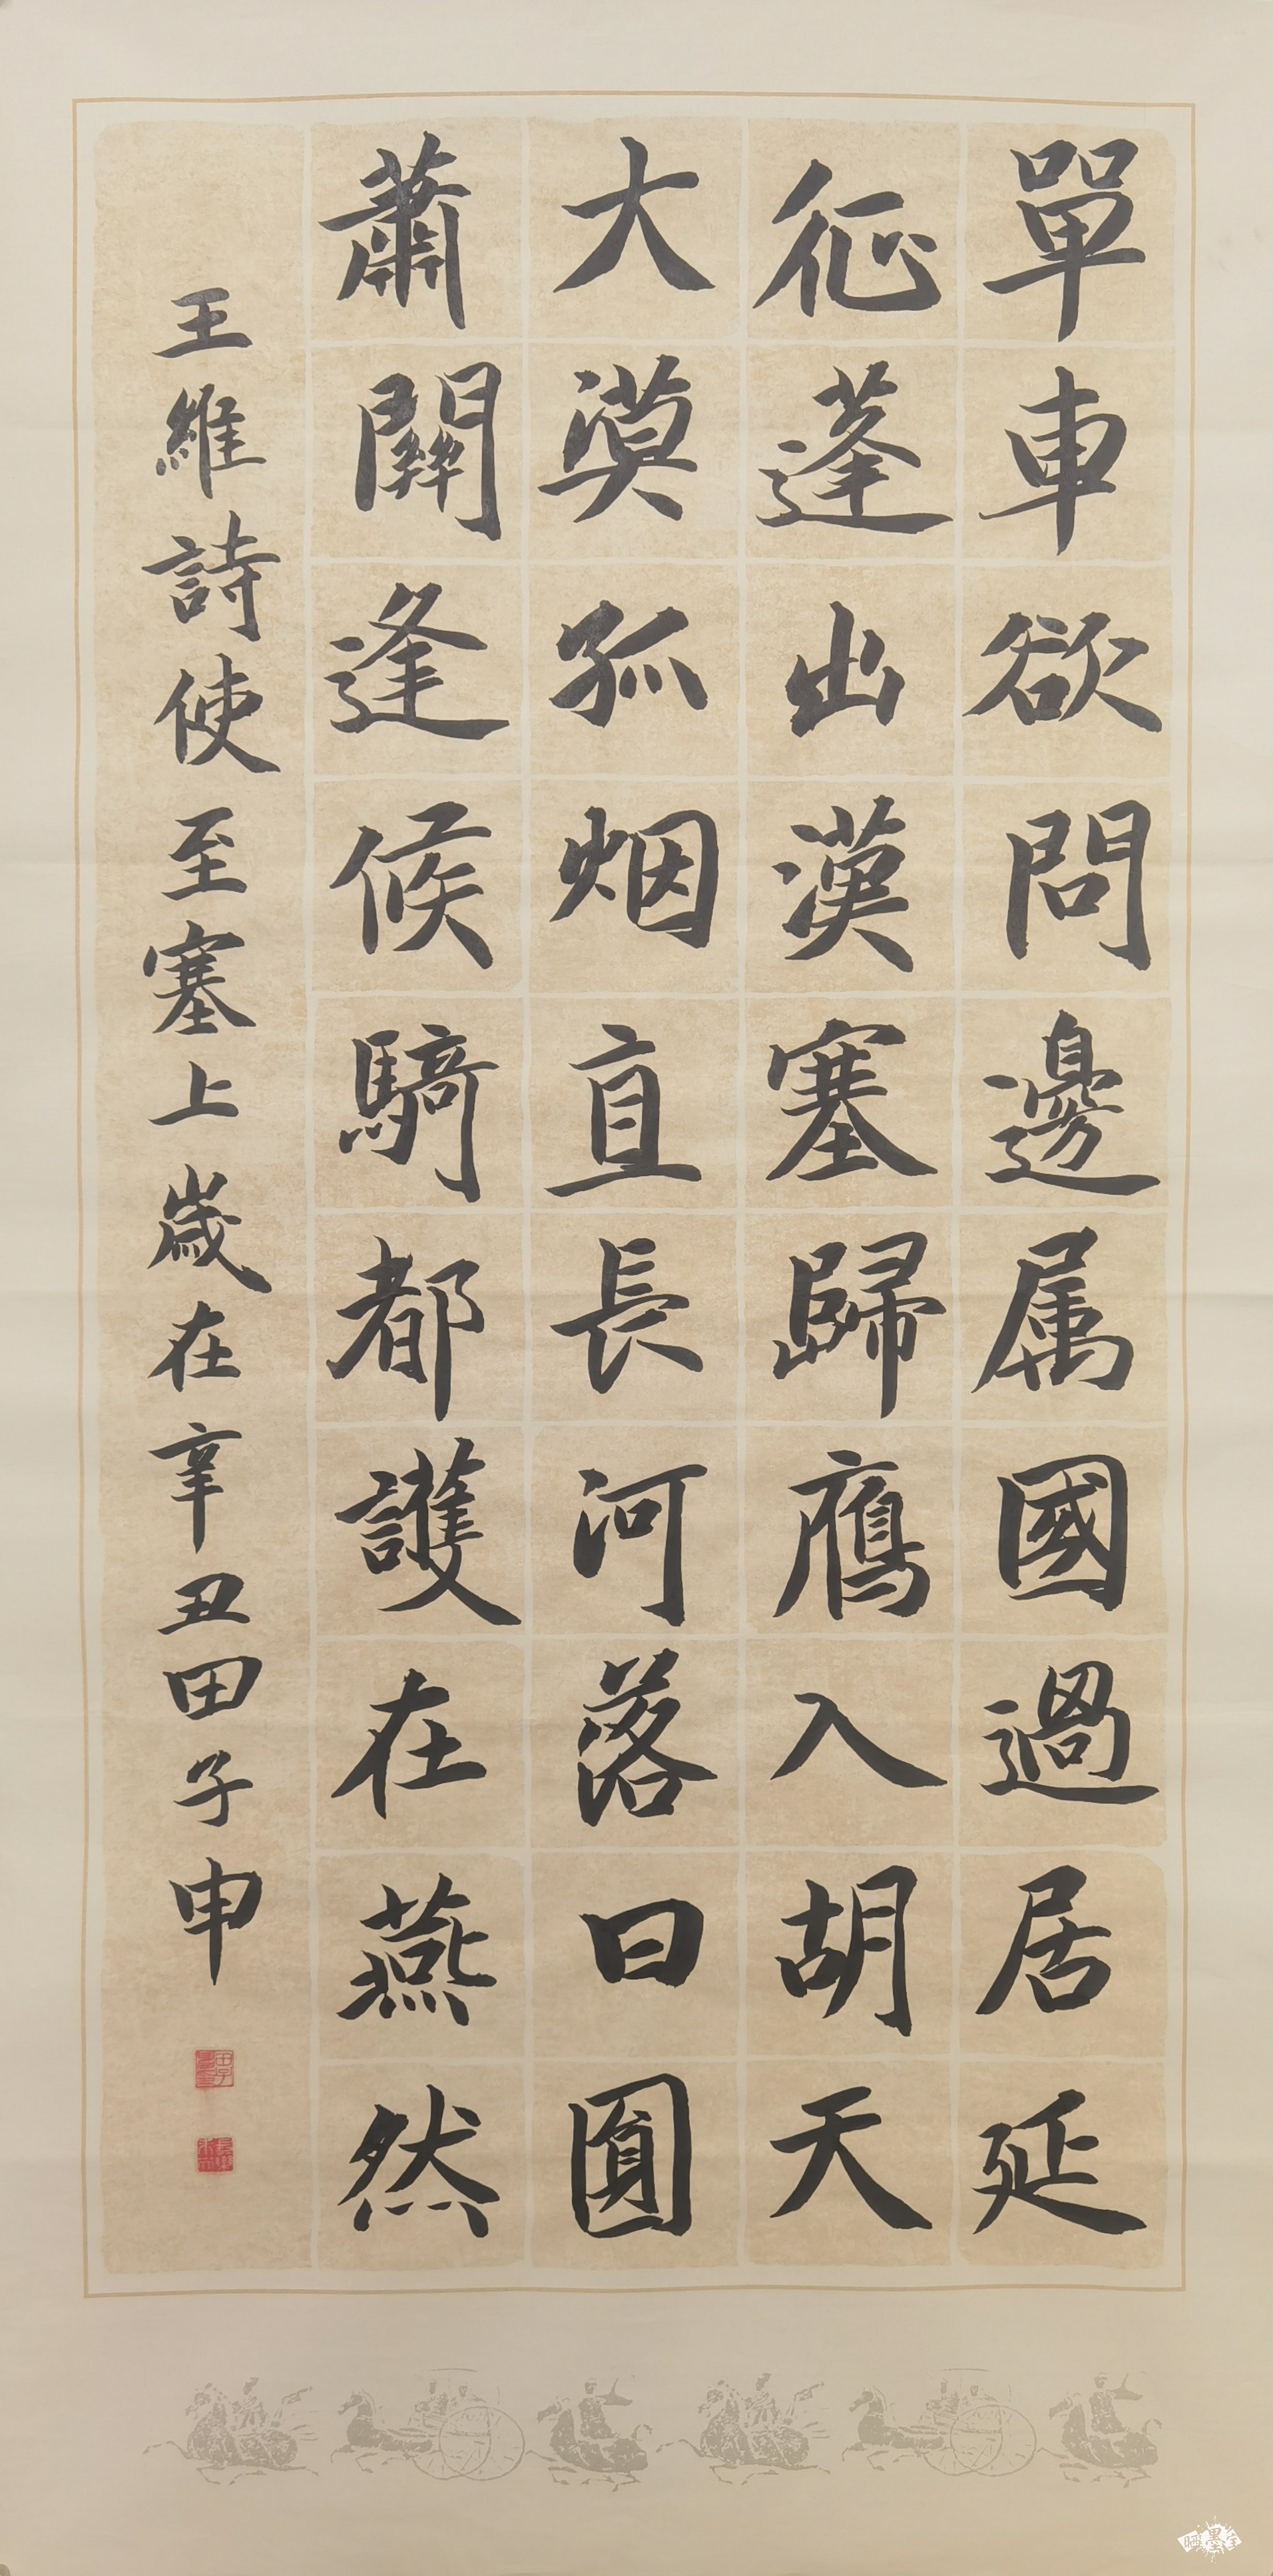 單車欲問邊属國過居延
征蓬出漢塞歸鴈入胡天
大漠孤烟直長河落日圓
蕭關逢候騎都護在燕然
王維詩使至塞上歲在辛丑田子申